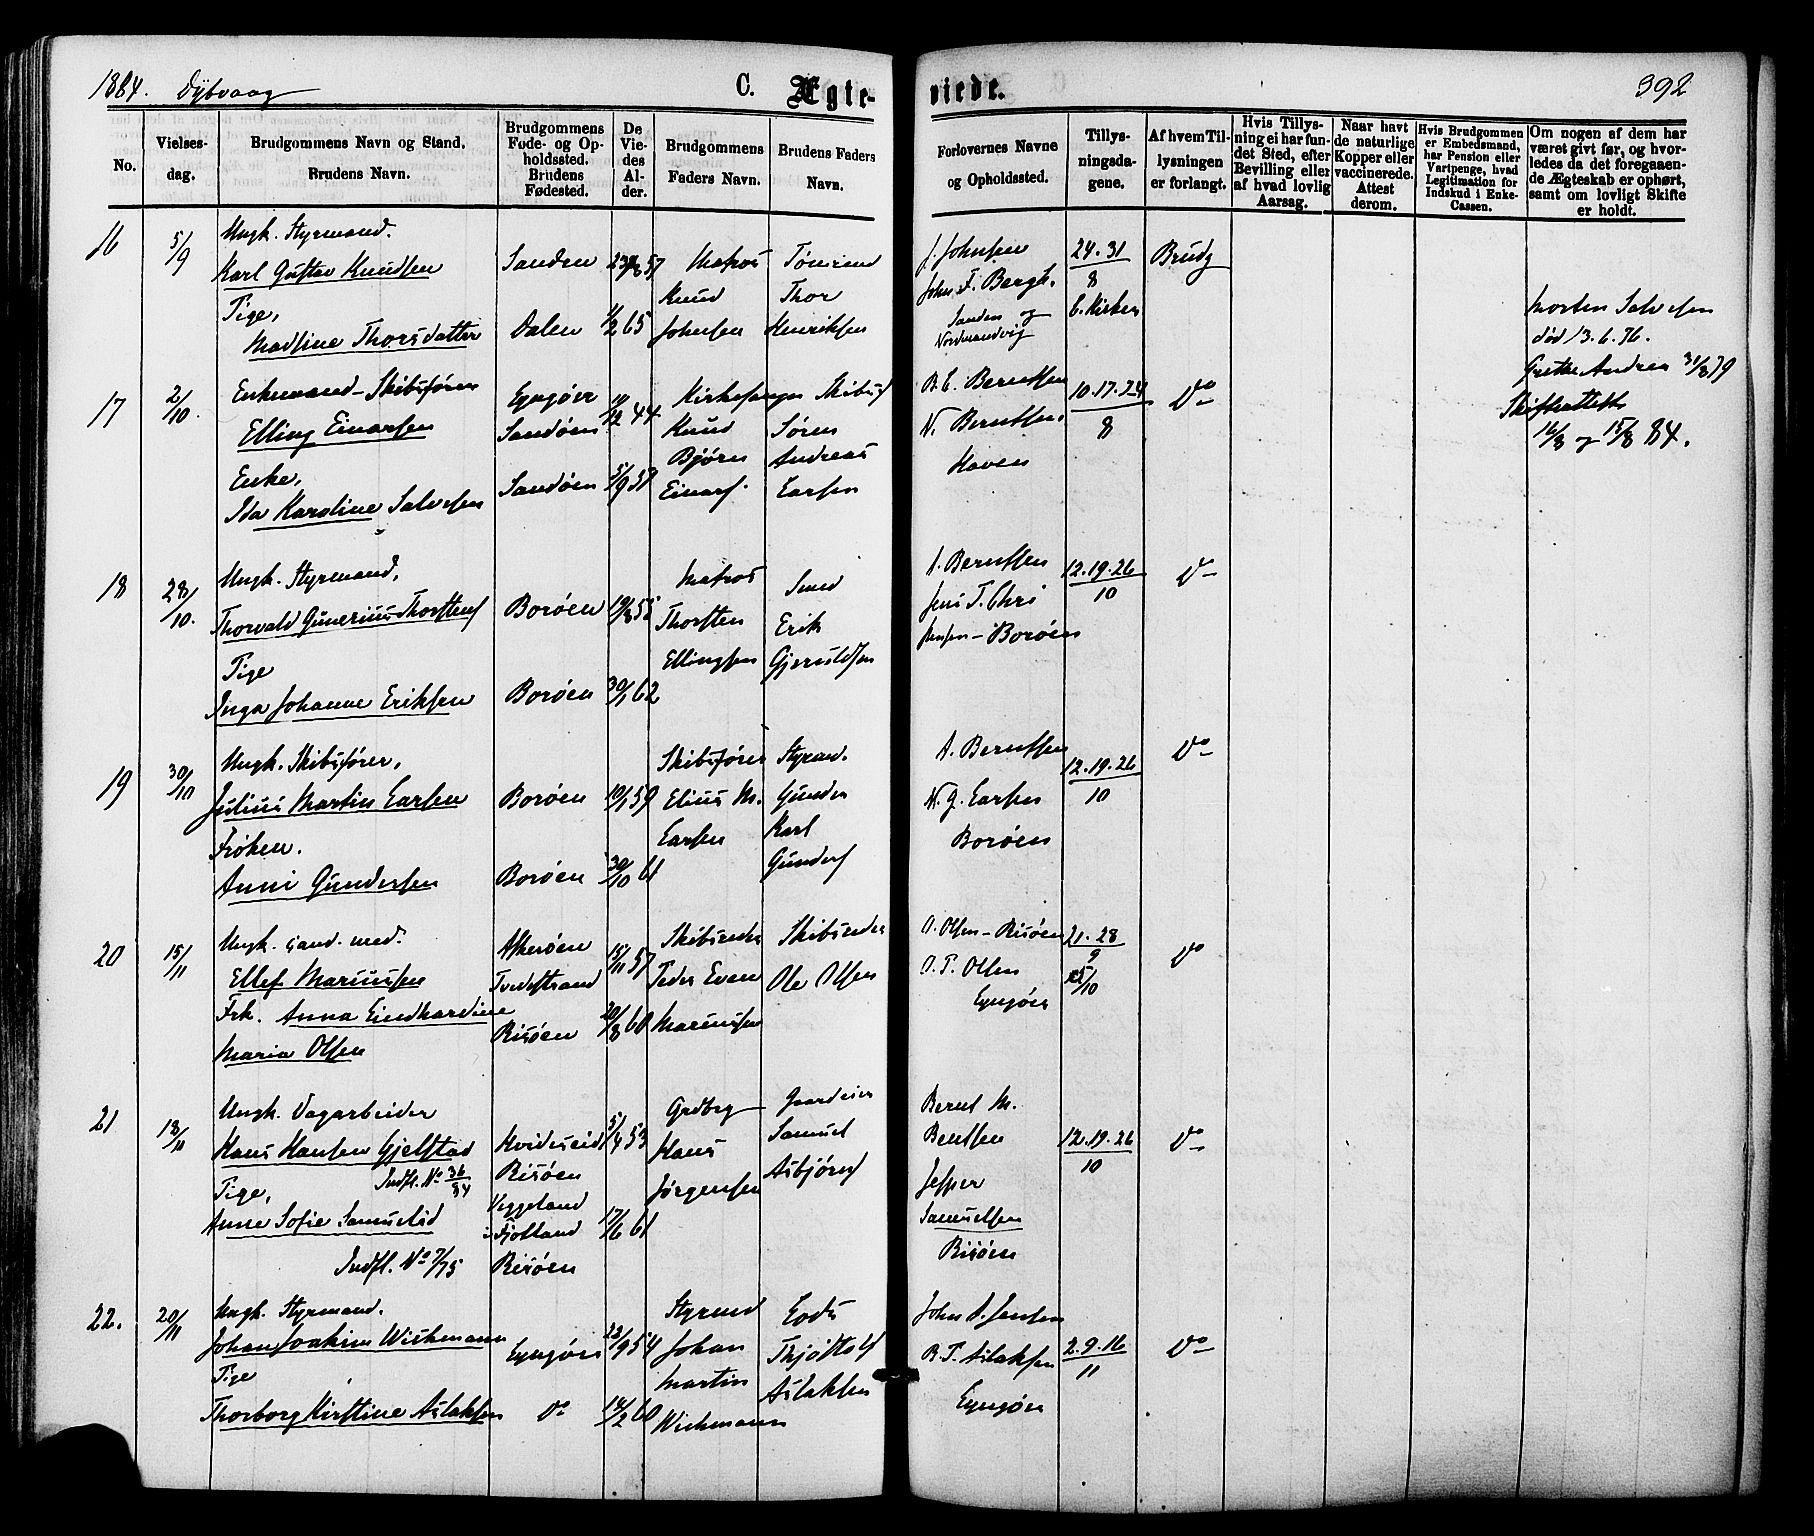 1884. Dybvaag
C. Ægteviede.
392
No.
Vielsesdag.
Brudgommens Navn og Stand.
Brudens Navn.
Brudgommens
Føde- og Op-
holdssted.
Brudens
Fødested.
De
Vie-
des
Al-
der.
Brudgommens
Faders Navn.
Brudens Faders
Navn.
Forlovernes Navne
og Opholdssted.
Tillys-
ningsda-
gene.
Af hvem Til-
lysningen
er forlangt.
Hvis Tillys-
ning ei har fun-
det Sted, efter
Bevilling eller
af hvad lovlig
Aarsag.
Naar havt
de naturlige
Kopper eller
vaccinerede.
Attest
derom.
Hvis Brudgommen
er Embedsmand,
har Pension eller
Vartpenge, hvad
Legitimation for
Indskud i Enke-
Cassen.
Om nogen af dem har
været givt før, og hvor-
ledes da det foregaaen-
de Ægteskab er ophørt,
samt om lovligt Skifte
er holdt.
16
5/9
Ungk. Styrmand.
Karl Gustav Knudsen
Pige,
Madline Thorsdatter
Sanden
Dalen
57
1/2 65
Matros
Knud
Johnsen
Tømmrmd
Thor
Henriksen
J. Johnsen
John. F. Bergh.
Sanden og
Nordmandvig
24. 31
8
Brudg
17
2/10.
Enkemand – Skibsfører
Elling Einarsen
Enke,
Ida Karoline Salvesen
Lyngøer
Sandøen
Sandøen
44
5/9 57
Kirkesanger
Knud
Bjørn
Einars.
Skibsf
Søren
Andreas
Larsen
B. C. Berntsen
N. Berntsen
Haven
10. 17. 24
8
Do
Morten Salvesen
død 13. 6. 76.
Grethe Andrea 31/8 79
Skifteattest
16/8 og 15/8 84.
18
28/10.
Ungk. Styrmand,
Thorvald Gunerius Thorstens
Pige
Inga Johanne Eriksen
Borøen
Borøen
19/8 55
30/1 62
Matros
Thorsten
Ellingsen
Smed
Erik
Gjeruldsen
A. Berntsen
Jens T. Chri
stensen – Borøen
12. 19. 26
10
Do
19
30/10
Ungk. Skibsfører,
Julius Martin Larsen
Frøken.
Anni Gundersen
Borøen
Borøen
10/1 59
30/10 61
Skibsfører
Elius M.
Larsen
Styrmd.
Gunder
Karl
Gunders
A. Berntsen
N. J. Larsen
Borøen
12. 19. 26
10
Do
20
15/11
Ungk. cand. med.
Ellef Mariussen
Frk. Anna Lindhardine
Maria Olsen
Askerøen
Tvedestrand
Risøen
15/11 57
20/8 60
Skibsreder
Peder Even
Mariussen
Skibsreder
Ole Olsen
O. Olsen – Risøen
O. T. Olsen
Lyngøer
21. 28
9
5/10
Do
21
18/11
Ungk. Dagarbeider
Hans Hansen Gjelstad
Indfl. No 36/84
Pige,
Anne Sofie Samuelsd
Indfl. No 7/75
Hvideseid
Risøen
Veggeland
i Fjotland
Risøen
5/4 53
17/6 61
Grdbrg
Hans
Jørgensen
Gaardeier
Samuel
Asbjørns
Bernt M.
Bentsen
Jesper
Samuelsen
Risøen
12. 19. 26
10
Do
22.
20/11
Ungk. Styrmand.
Johan Joakim Wichmann
Pige
Thorborg Kirstine Aslaksen
Lyngøer
Do
23/9 54
14/2 60
Styrmd
Johan
Martin
Wichmann
Lods
Thjøstolf
Aslaksen
John A. Jensen
B. T. Aslaksen
Lyngøer
2. 9. 16
11
Do